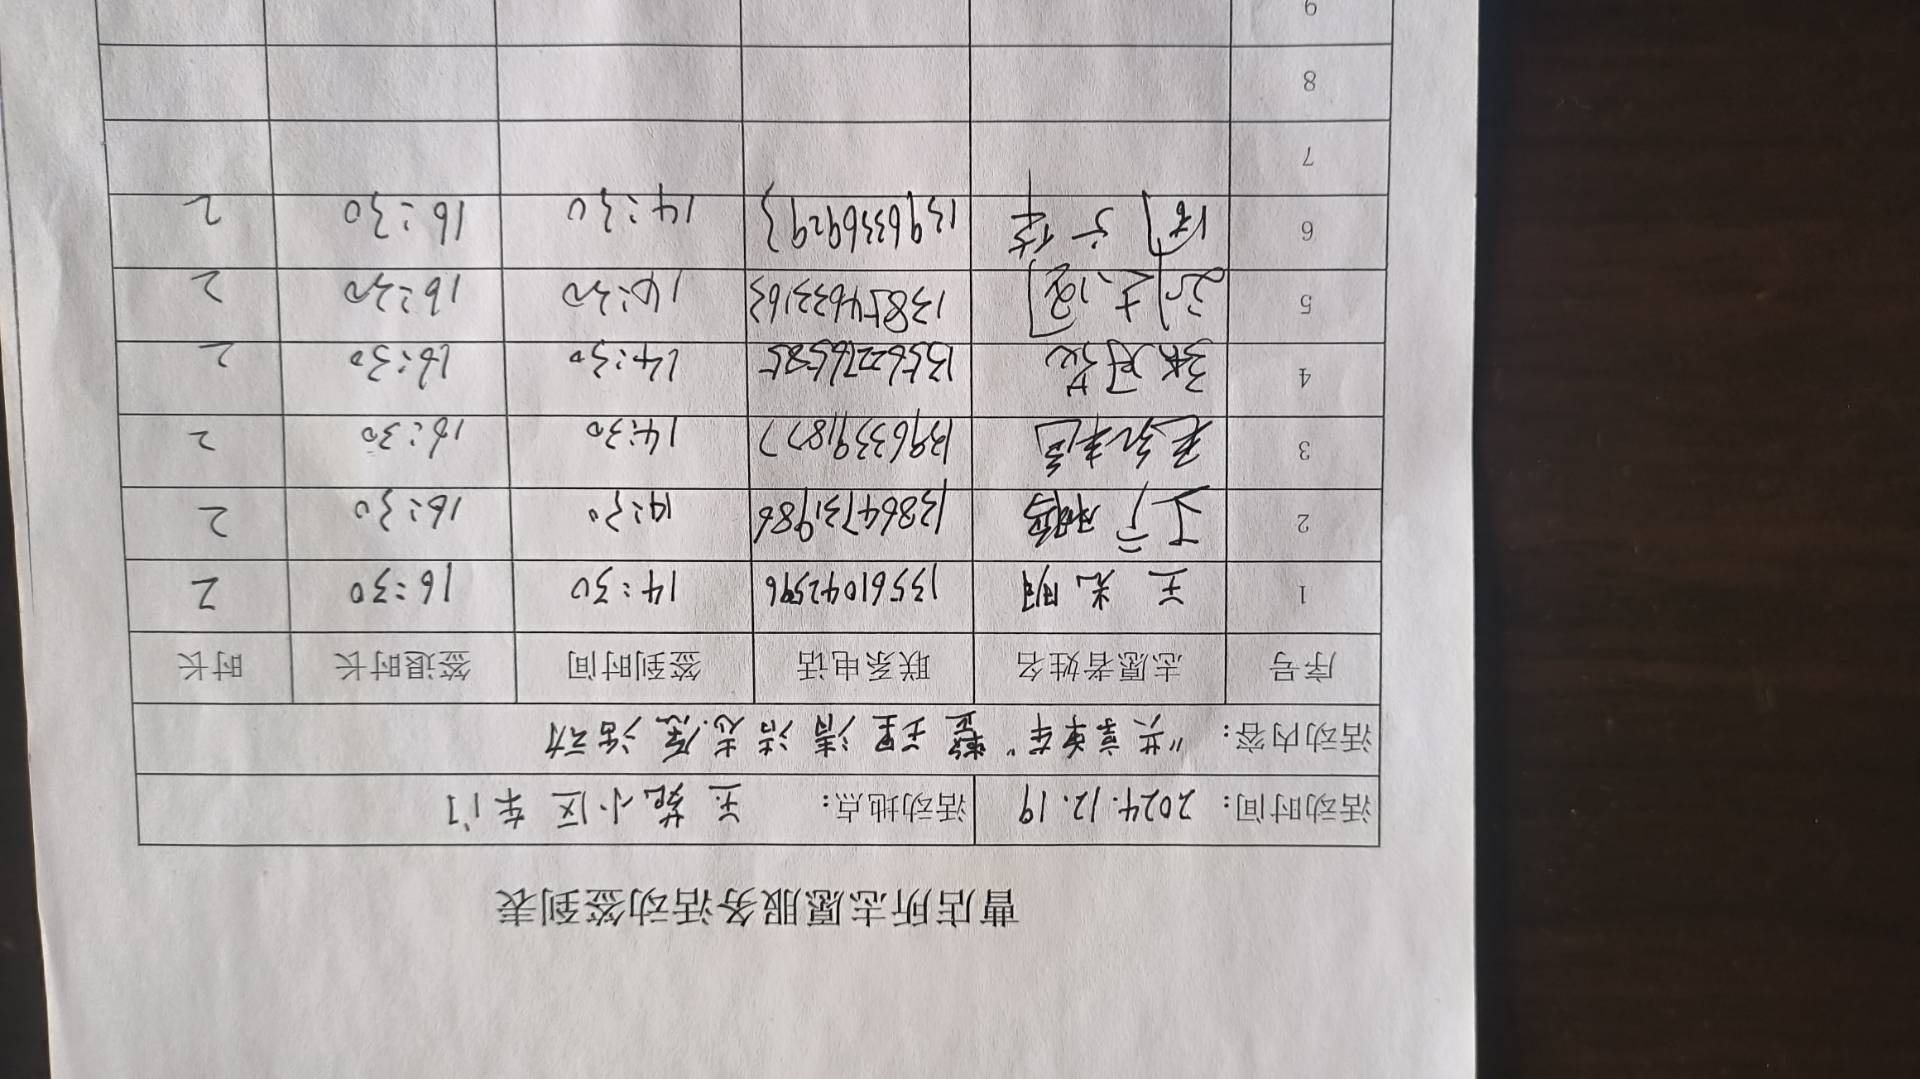 曹店所志愿服务活动签到表
活动时间: 2024.12.19 活动地点: 王苑小区车门
活动内容: "共享单车"整理清洁志愿活动
序号 志愿者姓名 联系电话 签到时间 签退时长 时长
1 王光明 13561042596 14:30 16:30 2
2 13864731986 14:30 16:30 2
3 13963391877 14:30 16:30 2
4 13562276585 14:30 16:30 2
5 13854633163 14:30 16:30 2
6 13963369293 14:30 16:30 2
7
8
9